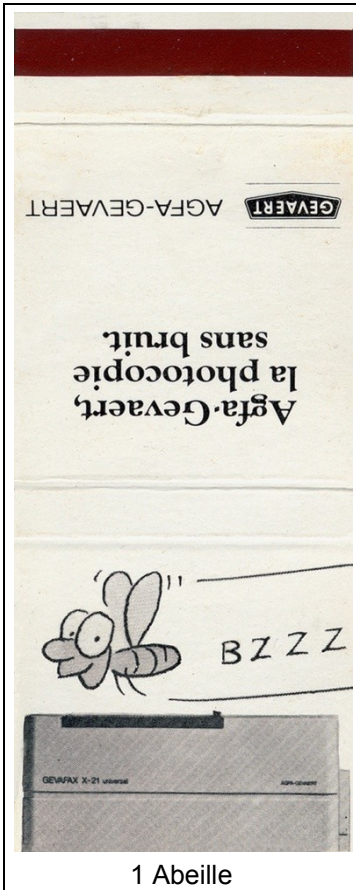 GEVAERT AGFA-GEVAERT
Agfa-Gevaert,
la photocopie
sans bruit.
BZZZ
GEVAFAX X-21 universal AGFA-GEVAERT
1 Abeille